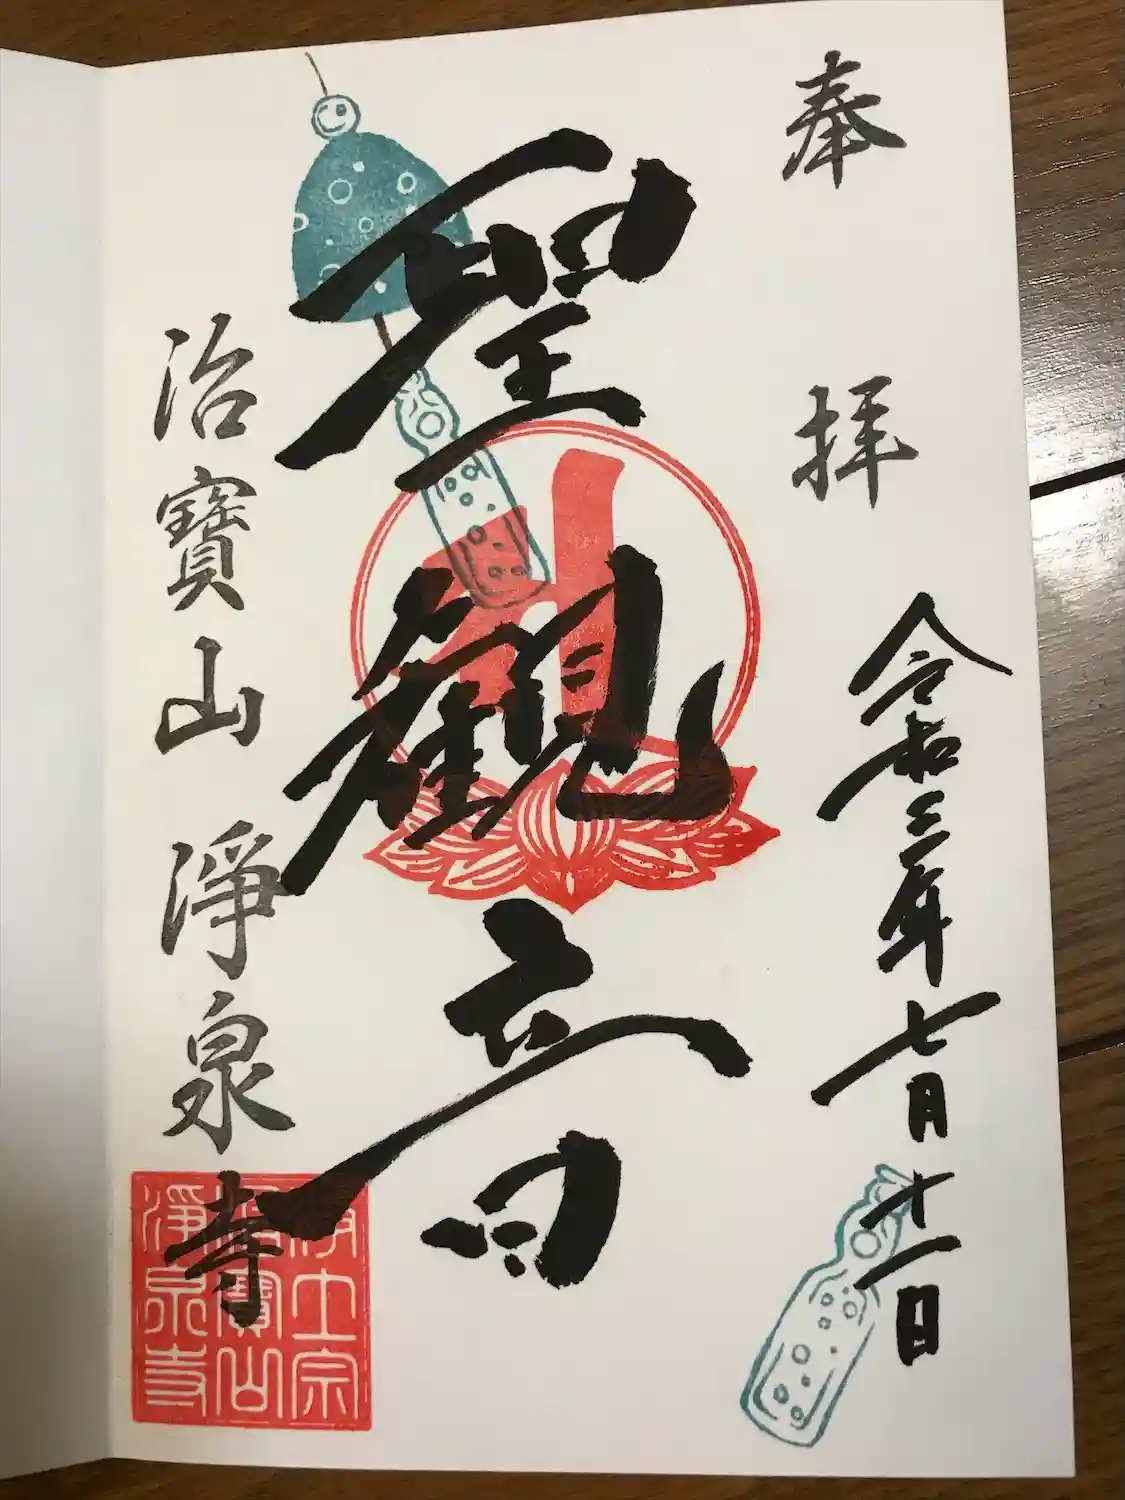 奉拝
令和三年七月十一日
聖観音
治寶山淨泉寺
浄土宗
治寶山
淨泉寺